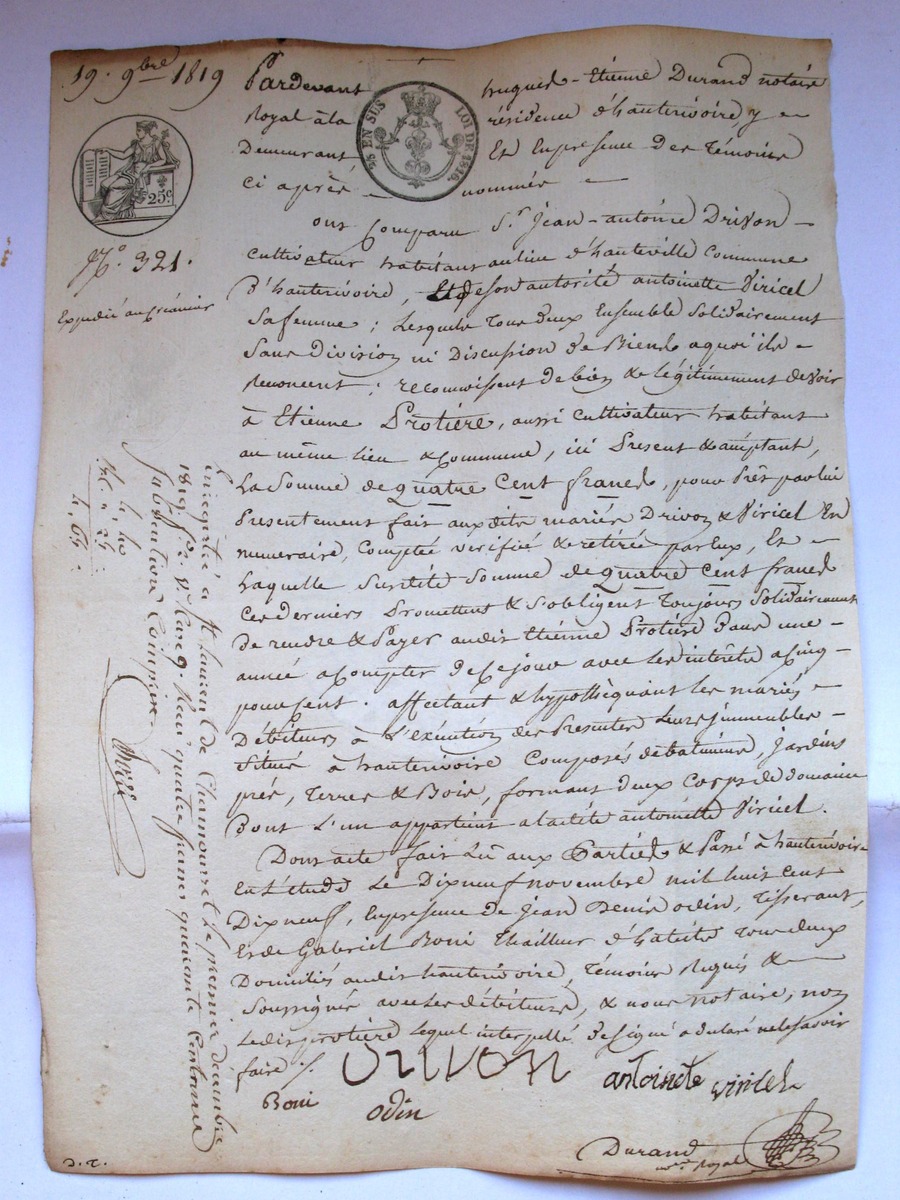 19. 9bre 1819
25 EN SUS LOI DE 1816.
25c
No. 321.
Expédié au créancier
Pardevant hugues-Etiénne Durand notaire
Royal à la résidence d'hauterivoire y
Demeurant Et En présence Des Témoins
ci après nommés
ont Comparu Sr. Jean-antoine Drivon
cultivateur habitant au lieu d'hauteville Commune
D'hauterivoire, Et de son autorité antoinette Viricel
Sa femme; Lesquels Tous deux Ensemble Solidairement
Sans Division ni Discussion de Biens a quoi ils
Renoncent; reconnoissent de bien & légitimement devoir
à Etienne Protière, aussi cultivateur habitant
au même lieu & Commune, ici Present & acceptant,
La Somme de quatre Cent francs, pour Prêt par lui
Presentement fait aux dits mariés Drivon & Viricel En
numeraire, Comptée vérifiée & retirée par Eux, Et
Laquelle Susdite Somme de quatre Cent francs
Ces derniers Promettent & S'obligent Toujours Solidairement
De rendre & Payer audit Etiénne Protière Dans une
année a Compter de Ce jour avec Les intérêts a Cinq
pour Cent. affectant & hypothéquant Les mariés
Débiteurs à L'exécution des Presentes Leurs immeubles
Situés à hauterivoire Composés de batimens, Jardins
prés, Terres & Bois, formant deux Corps de domaine
Dont L'un appartient a ladite antoinette Viricel.
Dont acte fait Lû aux Parties & Passé à hauterivoire
En L'étude Le Dix neuf novembre mil huit Cent
Dix neuf, En présence de Jean Denis odin, Tisserant,
Et de Gabriel Boni Thailleur d'habits Tous deux
Domiciliés audit hauterivoire, Témoins Requis &
Soussignés avec Les débiteurs, & nous notaire; non
Ledit protière Lequel interpellé de Signer a declaré ne le Savoir
faire ./.
Drivon antoinete viricel
Boni odin
Durand
nre Royal
D. T.
Enregistré à St. Laurent de Chamousset Le premier décembre
1819. fo. v. Case 9. Recu quatre francs quarante Centimes
Subvention Comprise.